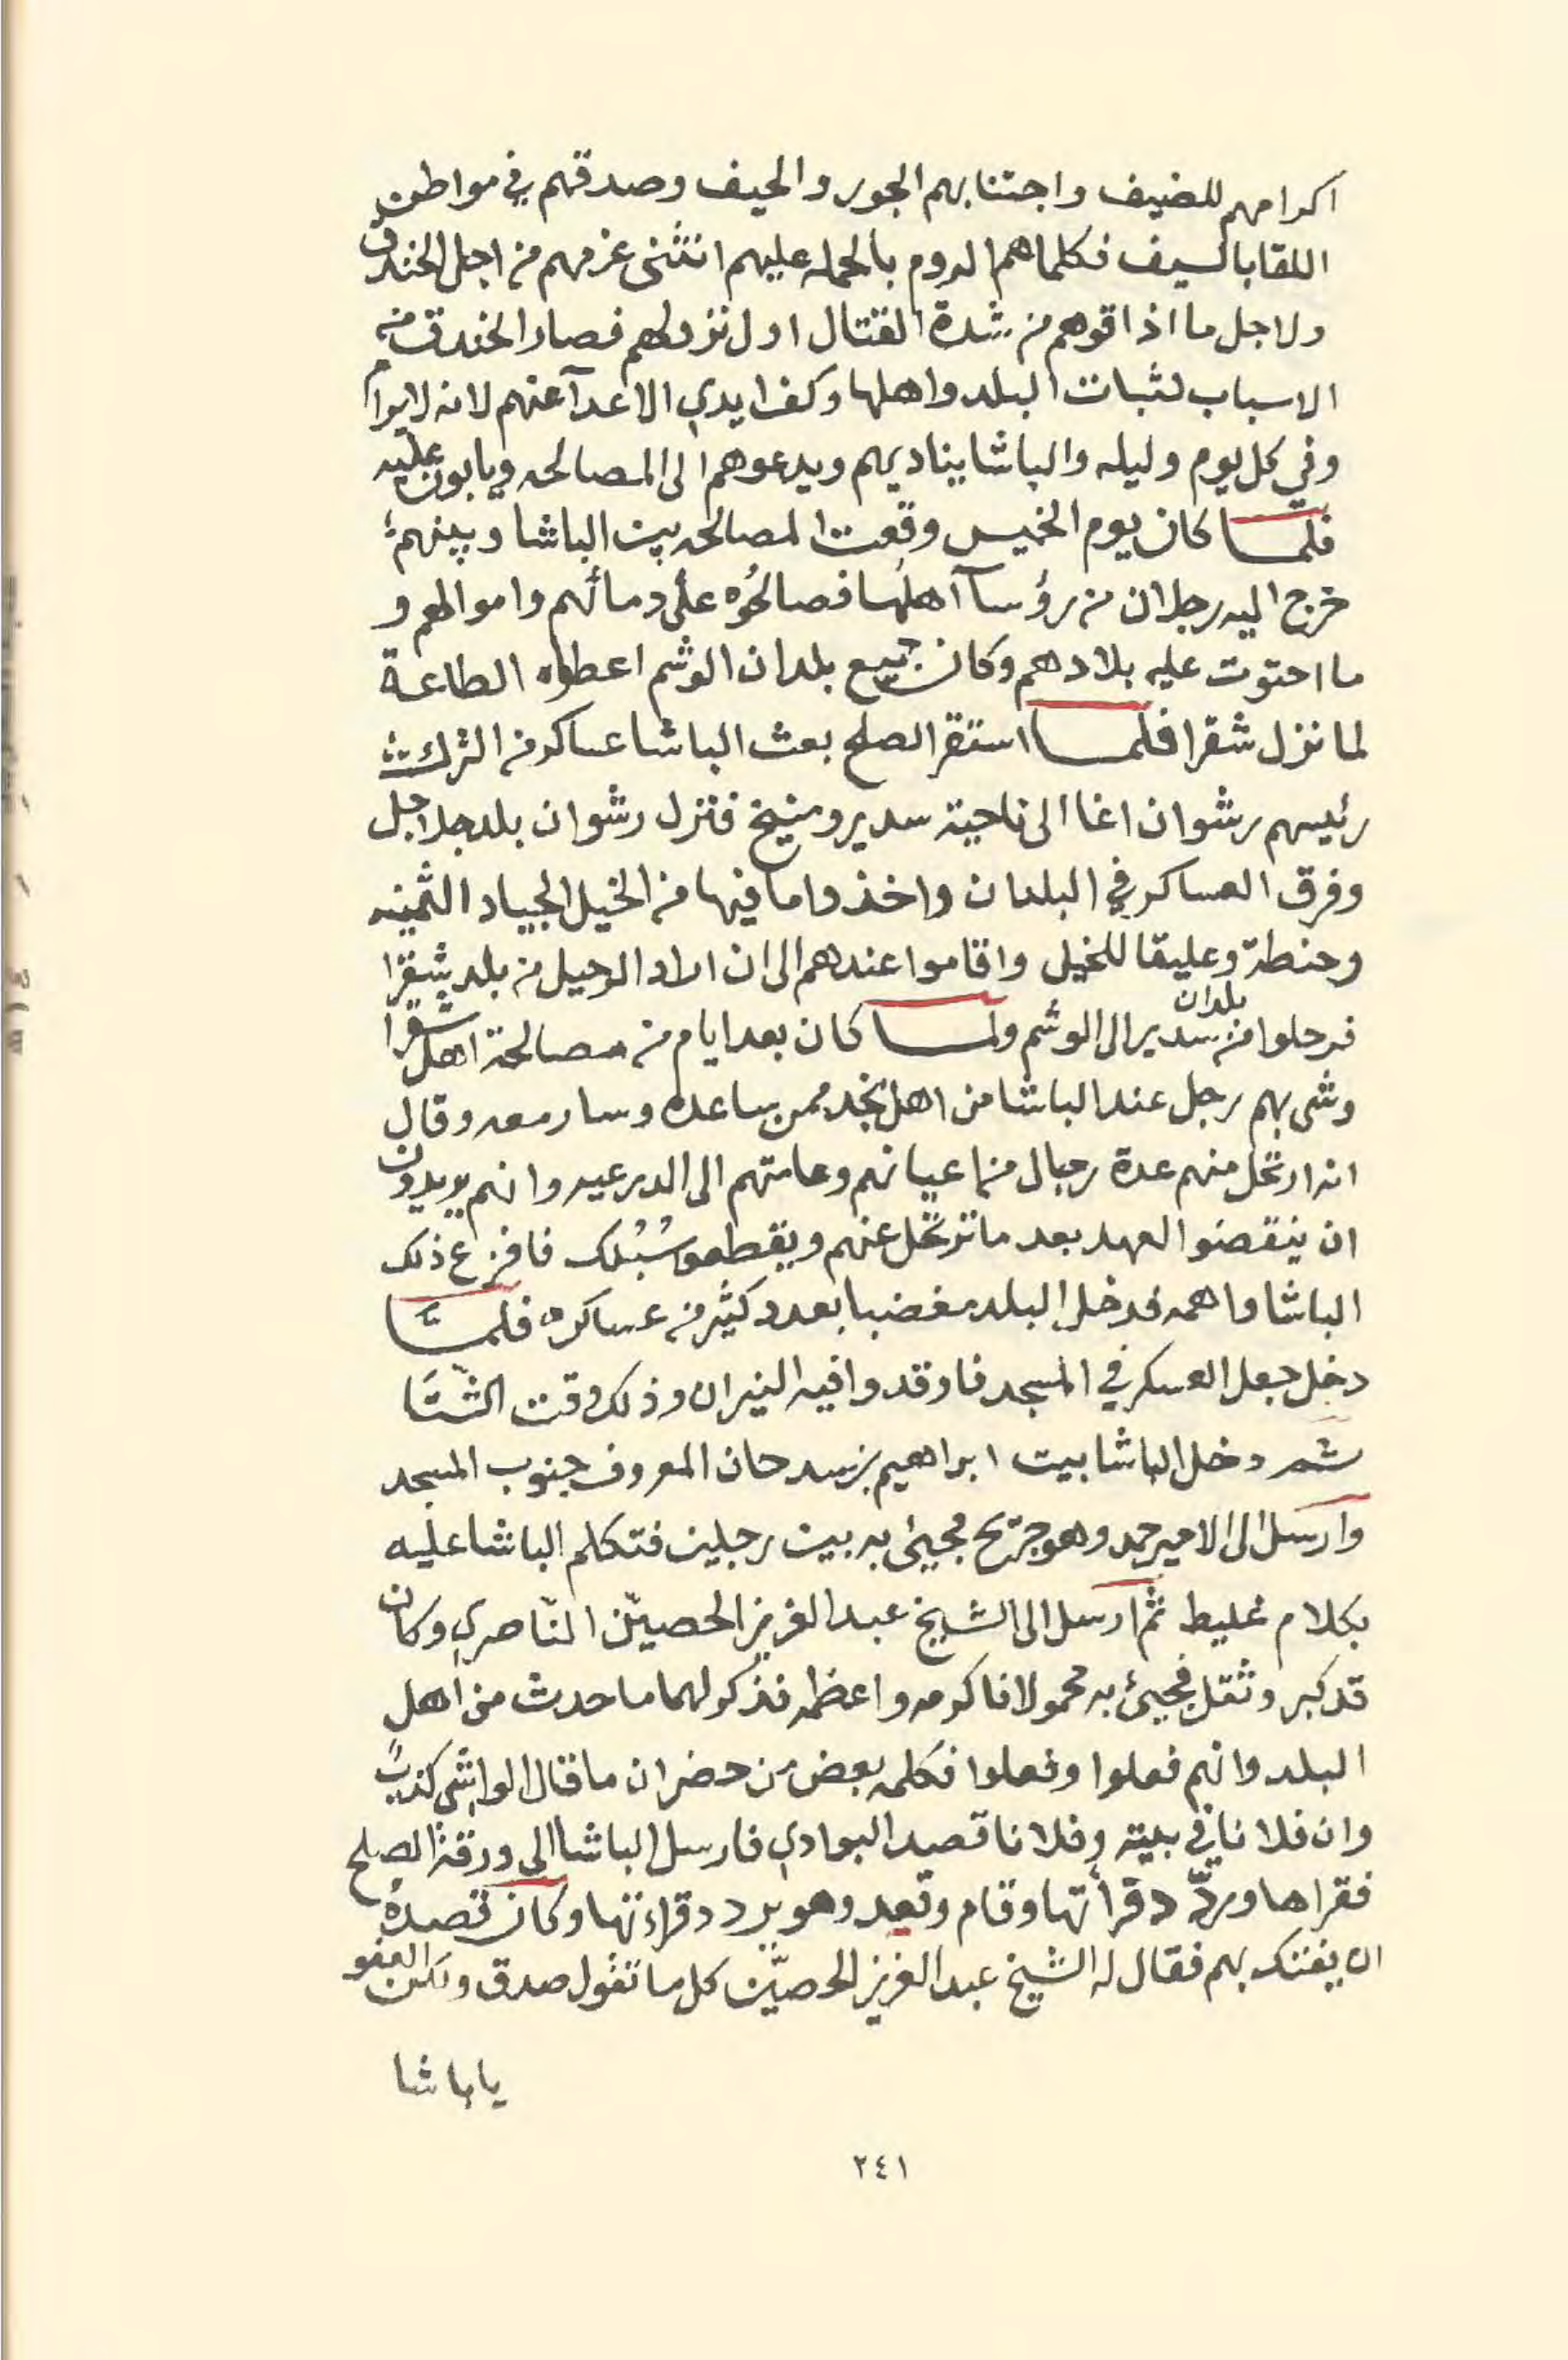 اكرامهم للضيف واجتنابهم الجور والحيف وصدقهم في مواطن
اللقا بالسيف فكلما هم الروم بالحمله عليهم انثنى عزمهم من اجل الخندق
ولاجل ما اذاقوهم من شدة القتال اول نزولهم فصار الخندق من
الاسباب لثبات البلد واهلها وكف ايدي الاعدآ عنهم لانه لا يرام
وفي كل يوم وليله والباشا يناديهم ويدعوهم الى المصالحه ويابون عليه
فلما كان يوم الخميس وقعت المصالحه بين الباشا وبينهم
خرج اليه رجلان من رؤسآ اهلها فصالحُوه على دمائهم واموالهم و
ما احتوت عليه بلادهم وكان جميع بلدان الوشم اعطوه الطاعة
لما نزل شقرا فلما استقر الصلح بعث الباشا عساكر من الترك
رئيسهم رشوان اغا الى ناحية سدير ومنيخ فنزل رشوان بلد جلاجل
وفرق العساكر في البلدان واخذوا ما فيها من الخيل الجياد الثمينه
وحنطة وعليقا للخيل واقاموا عندهم الى ان اراد الرحيل من بلد شقرا
فرحلوا من بلدان سدير الى الوشم ولما كان بعد ايام من مصالحة اهل شقرا
وشى بهم رجل عند الباشا من اهل نجد ممن ساعده وسار معه وقال
انه ارتحل منهم عدة رجال من اعيانهم وعامتهم الى الدرعيه وانهم يريدون
ان ينقضوا العهد بعد ما ترتحل عنهم ويقطعو سُبُلك فافزع ذلك
الباشا واهمه فدخل البلد مغضبا بعدد كثير من عساكره فلما
دخل جعل العسكر في المسجد فاوقدوا فيه النيران وذلك وقت الشتا
ثم دخل الباشا بيت ابراهيم بن سدحان المعروف جنوب المسجد
وارسل الى الامير حمد وهو جريح فجيئ به بين رجلين فتكلم الباشا عليه
بكلام غليط ثم ارسل الى الشيخ عبد العزيز الحصيّن النّاصري وكان
قد كبر وثقل فجيئ به محمولا فاكرمه واعظمه فذكر لهما ما حدث من اهل
البلد وانهم فعلوا وفعلوا فكلمه بعض من حضر ان ما قال الواشي كذبٌ
وان فلانا في بيته وفلانا قصد البوادي فارسل الباشا الى ورقة الصلح
فقراها وردّد قرأتها وقام وقعد وهو يردد قراءتها وكان قصدهُ
ان يفتك بهم فقال له الشيخ عبد العزيز الحصيّن كل ما تقول صدق ولكن العفو
ياباشا
٢٤١